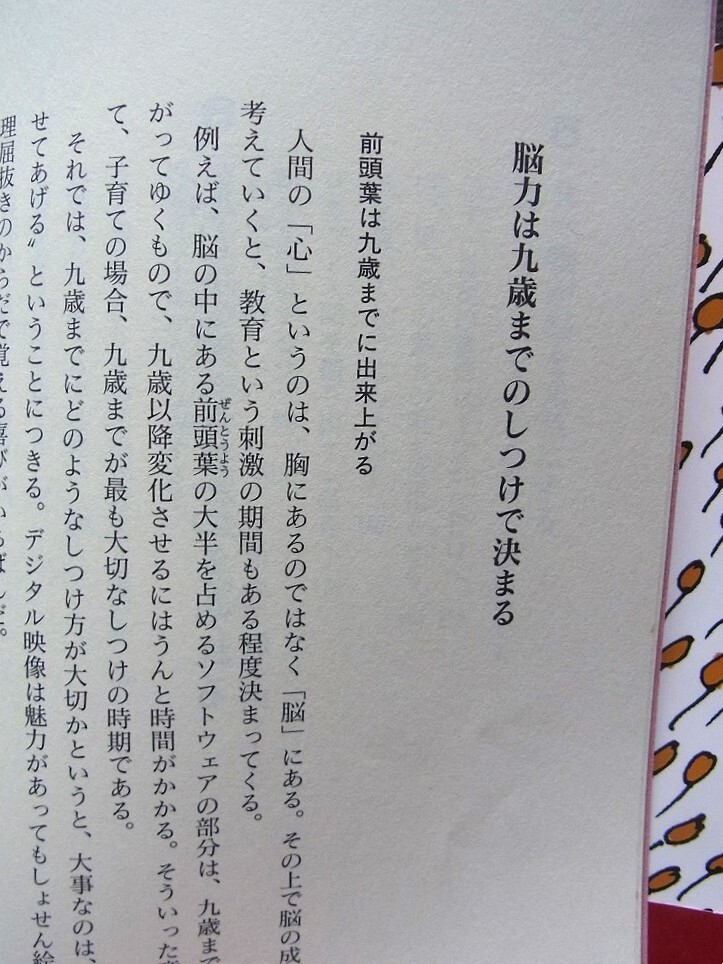 脳力は九歳までのしつけで決まる
前頭葉は九歳までに出来上がる
人間の「心」というのは、胸にあるのではなく「脳」にある。その上で脳の成
考えていくと、教育という刺激の期間もある程度決まってくる。
例えば、脳の中にある前頭葉の大半を占めるソフトウェアの部分は、九歳まで
ぜんとうよう
がってゆくもので、九歳以降変化させるにはうんと時間がかかる。そういった
て、子育ての場合、九歳までが最も大切なしつけの時期である。
それでは、九歳までにどのようなしつけ方が大切かというと、大事なのは、
せてあげる〟ということにつきる。デジタル映像は魅力があってもしょせん絵
理屈抜きのからだで覚える喜びがいちばんだ。